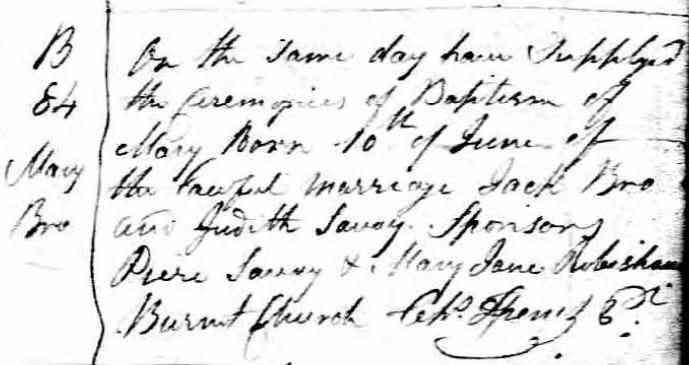 B
84
Mary
Bro
On the same day have Supplyed
the Ceremonies of Baptism of
Mary Born 10th of June of
the Lawful marriage Jack Bro
and Judith Savoy. Sponsors
Piere Savoy & Mary Jane Robishau
Burnt Church